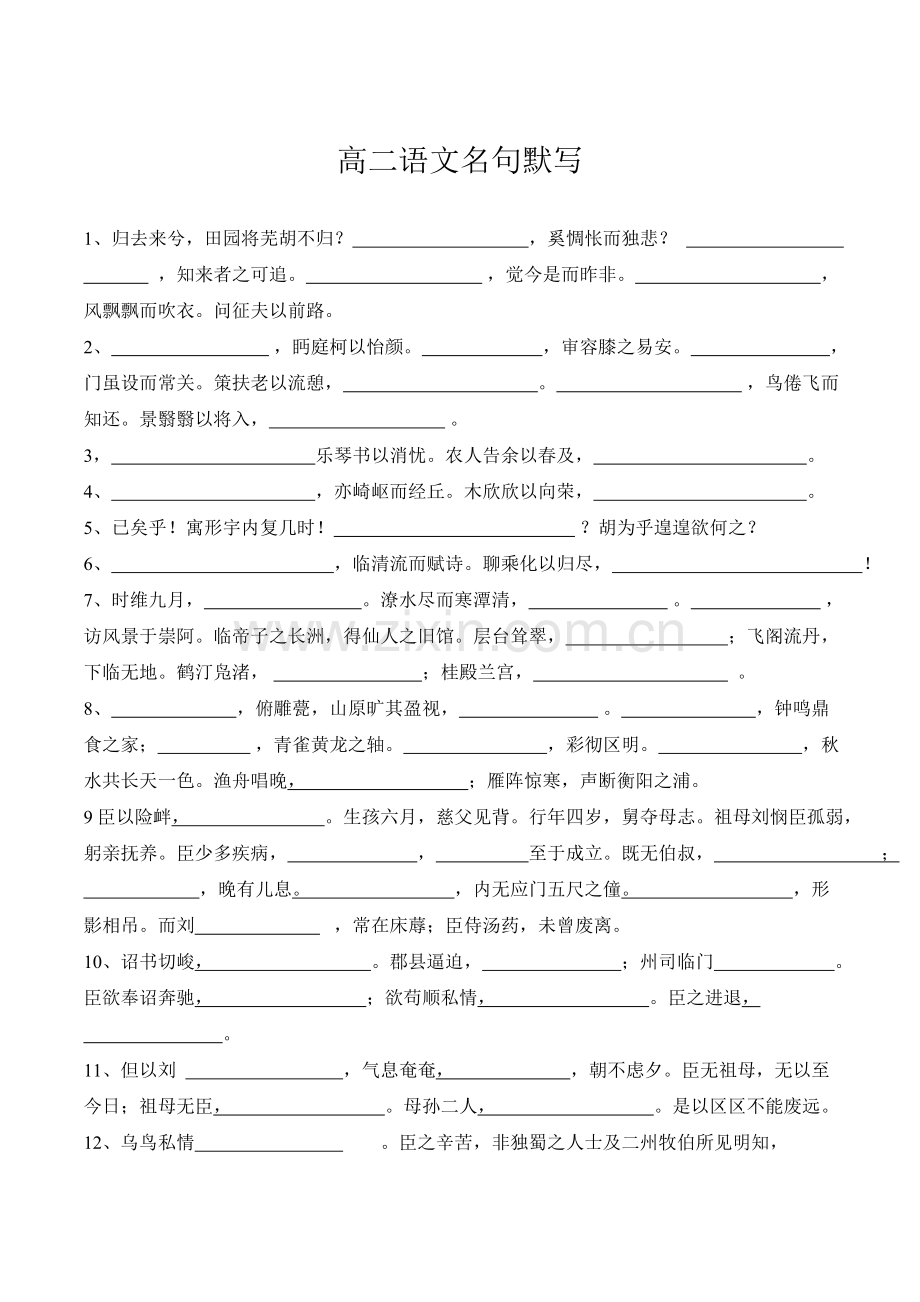 高二语文名句默写
1、归去来兮，田园将芜胡不归？___________________，奚惆怅而独悲？ _________________
_______ ，知来者之可追。___________________ ，觉今是而昨非。____________________，
风飘飘而吹衣。问征夫以前路。
2、_________________ ，眄庭柯以怡颜。_____________，审容膝之易安。_______________，
门虽设而常关。策扶老以流憩，_____________________。____________________ ，鸟倦飞而
知还。景翳翳以将入，___________________ 。
3，______________________乐琴书以消忧。农人告余以春及，_______________________。
4、______________________，亦崎岖而经丘。木欣欣以向荣，_______________________。
5、已矣乎！寓形宇内复几时！__________________________ ？胡为乎遑遑欲何之？
6、________________________，临清流而赋诗。聊乘化以归尽，___________________________！
7、时维九月，_________________。潦水尽而寒潭清，_______________ 。______________ ，
访风景于崇阿。临帝子之长洲，得仙人之旧馆。层台耸翠，__________________；飞阁流丹，
下临无地。鹤汀凫渚， ________________；桂殿兰宫，_____________________ 。
www.zixin.com.cn
8、_____________，俯雕甍，山原旷其盈视，_______________ 。______________，钟鸣鼎
食之家；__________ ，青雀黄龙之轴。________________，彩彻区明。_______________，秋
水共长天一色。渔舟唱晚，___________________；雁阵惊寒，声断衡阳之浦。
9臣以险衅，________________。生孩六月，慈父见背。行年四岁，舅夺母志。祖母刘悯臣孤弱，
躬亲抚养。臣少多疾病，______________，__________至于成立。既无伯叔，__________________；
____________，晚有儿息。________________，内无应门五尺之僮。_________________，形
影相吊。而刘_____________ ，常在床蓐；臣侍汤药，未曾废离。
10、诏书切峻，__________________。郡县逼迫，_______________；州司临门_____________。
臣欲奉诏奔驰，_________________；欲苟顺私情，_________________。臣之进退，
_______________。
11、但以刘 _________________，气息奄奄，_____________，朝不虑夕。臣无祖母，无以至
今日；祖母无臣，_________________。母孙二人，_________________。是以区区不能废远。
12、乌鸟私情________________ 。臣之辛苦，非独蜀之人士及二州牧伯所见明知，